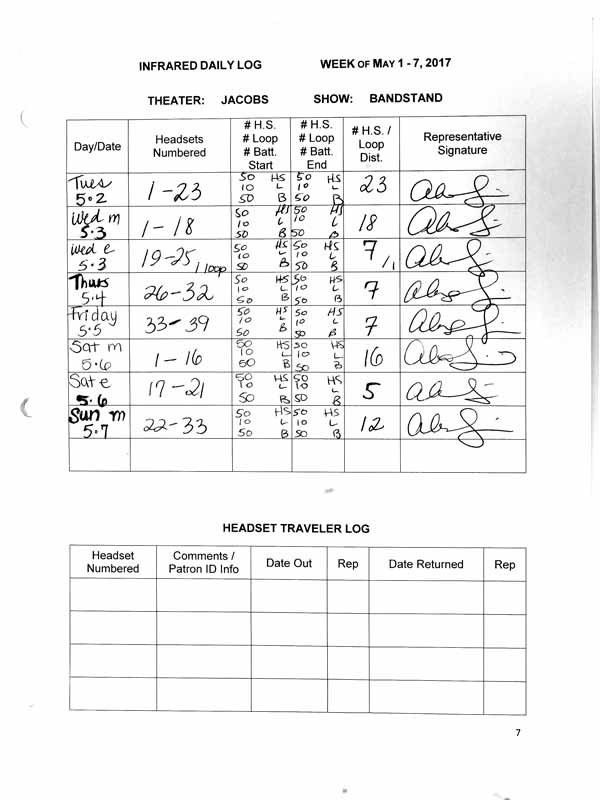 INFRARED DAILY LOG WEEK OF MAY 1 - 7, 2017
THEATER: JACOBS SHOW: BANDSTAND
Day/Date Headsets Numbered # H.S. # Loop # Batt. Start # H.S. # Loop # Batt. End # H.S. / Loop Dist. Representative Signature
Tues 5.2 1-23 50 HS 10 L 50 B 50 HS 10 L 50 B 23
Wed m 5.3 1-18 50 HS 10 L 50 B 50 HS 10 L 50 B 18
Wed e 5.3 19-25/1 loop 50 HS 10 L 50 B 50 HS 10 L 50 B 7/1
Thurs 5.4 26-32 50 HS 10 L 50 B 50 HS 10 L 50 B 7
Friday 5.5 33-39 50 HS 10 L 50 B 50 HS 10 L 50 B 7
Sat m 5.6 1-16 50 HS 10 L 50 B 50 HS 10 L 50 B 16
Sat e 5.6 17-21 50 HS 10 L 50 B 50 HS 10 L 50 B 5
Sun m 5.7 22-33 50 HS 10 L 50 B 50 HS 10 L 50 B 12
HEADSET TRAVELER LOG
Headset Numbered Comments / Patron ID Info Date Out Rep Date Returned Rep
7